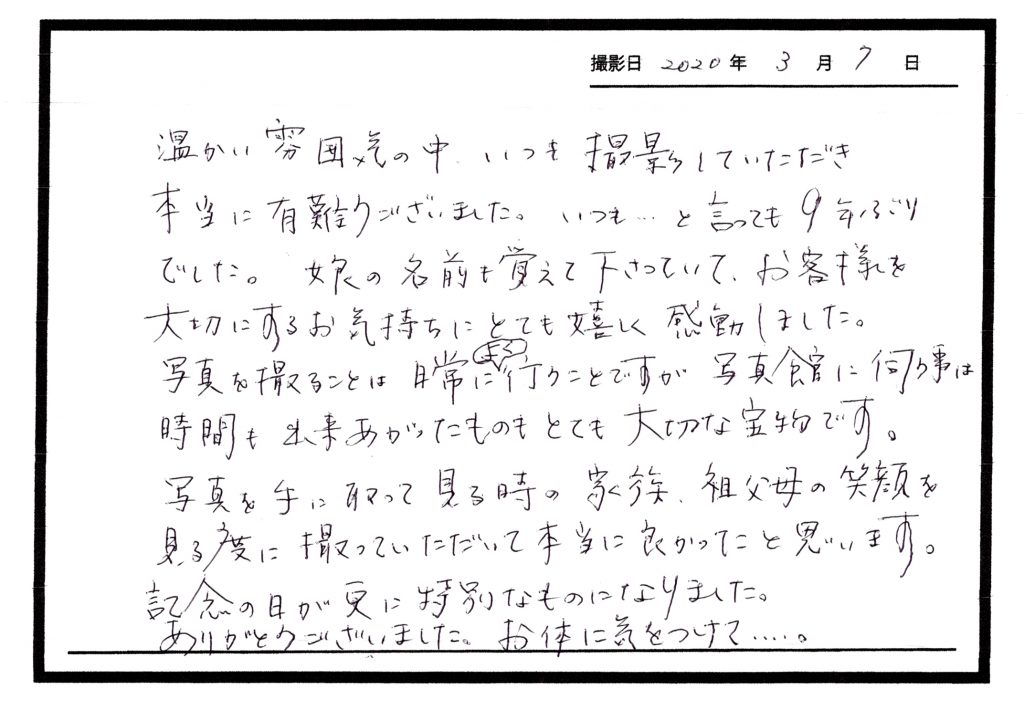 撮影日 2020年 3月 7日
温かい雰囲気の中、いつも撮影していただき
本当に有難うございました。いつも…と言っても9年ぶり
でした。娘の名前も覚えて下さっていて、お客様を
大切にするお気持ちにとても嬉しく感動しました。
写真を撮ることは日常に行うことですが写真館に伺う事は
時間も出来あがったものもとても大切な宝物です。
写真を手に取って見る時の家族、祖父母の笑顔を
見る度に撮っていただいて本当に良かったこと思います。
記念の日が更に特別なものになりました。
ありがとうございました。お体に気をつけて……。